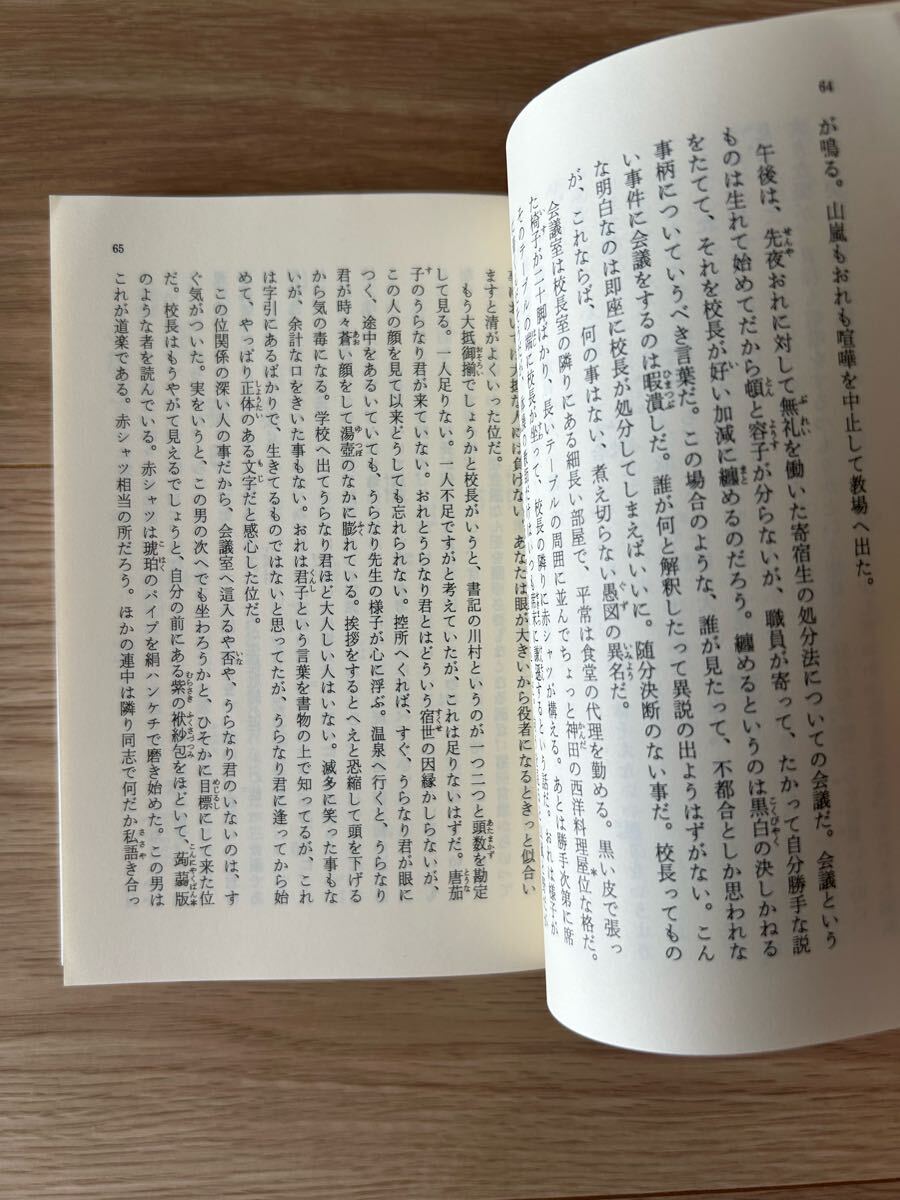 64
が鳴る。山嵐もおれも喧嘩を中止して教場へ出た。
午後は、先夜おれに対して無礼を働いた寄宿生の処分法についての会議だ。会議という
ものは生れて始めてだから頓と容子が分らないが、職員が寄って、たかって自分勝手な説
をたてて、それを校長が好い加減に纏めるのだろう。纏めるというのは黒白の決しかねる
事柄についていうべき言葉だ。この場合のような、誰が見たって、不都合としか思われな
い事件に会議をするのは暇潰しだ。誰が何と解釈したって異説の出ようはずがない。こん
な明白なのは即座に校長が処分してしまえばいいに。随分決断のない事だ。校長ってもの
が、これならば、何の事はない、煮え切らない愚図の異名だ。
会議室は校長室の隣りにある細長い部屋で、平常は食堂の代理を勤める。黒い皮で張っ
た椅子が二十脚ばかり、長いテーブルの周囲に並んでちょっと神田の西洋料理屋位な格だ。
そのテーブルの端に校長が坐って、校長の隣りに赤シャツが構える。あとは勝手次第に席
65
ますと清がよくいった位だ。
もう大抵御揃でしょうかと校長がいうと、書記の川村というのが一つ二つと頭数を勘定
して見る。一人足りない。一人不足ですがと考えていたが、これは足りないはずだ。唐茄
子のうらなり君が来ていない。おれとうらなり君とはどういう宿世の因縁かしらないが、
この人の顔を見て以来どうしても忘れられない。控所へくれば、すぐ、うらなり君が眼に
つく、途中をあるいていても、うらなり先生の様子が心に浮ぶ。温泉へ行くと、うらなり
君が時々蒼い顔をして湯壺のなかに膨れている。挨拶をするとへえと恐縮して頭を下げる
から気の毒になる。学校へ出てうらなり君ほど大人しい人はいない。滅多に笑った事もな
いが、余計な口をきいた事もない。おれは君子という言葉を書物の上で知ってるが、これ
は字引にあるばかりで、生きてるものではないと思ってたが、うらなり君に逢ってから始
めて、やっぱり正体のある文字だと感心した位だ。
この位関係の深い人の事だから、会議室へ這入るや否や、うらなり君のいないのは、す
ぐ気がついた。実をいうと、この男の次へでも坐わろうかと、ひそかに目標にして来た位
だ。校長はもうやがて見えるでしょうと、自分の前にある紫の袱紗包をほどいて、蒟蒻版
のような者を読んでいる。赤シャツは琥珀のパイプを絹ハンケチで磨き始めた。この男は
これが道楽である。赤シャツ相当の所だろう。ほかの連中は隣り同志で何だか私語き合っ